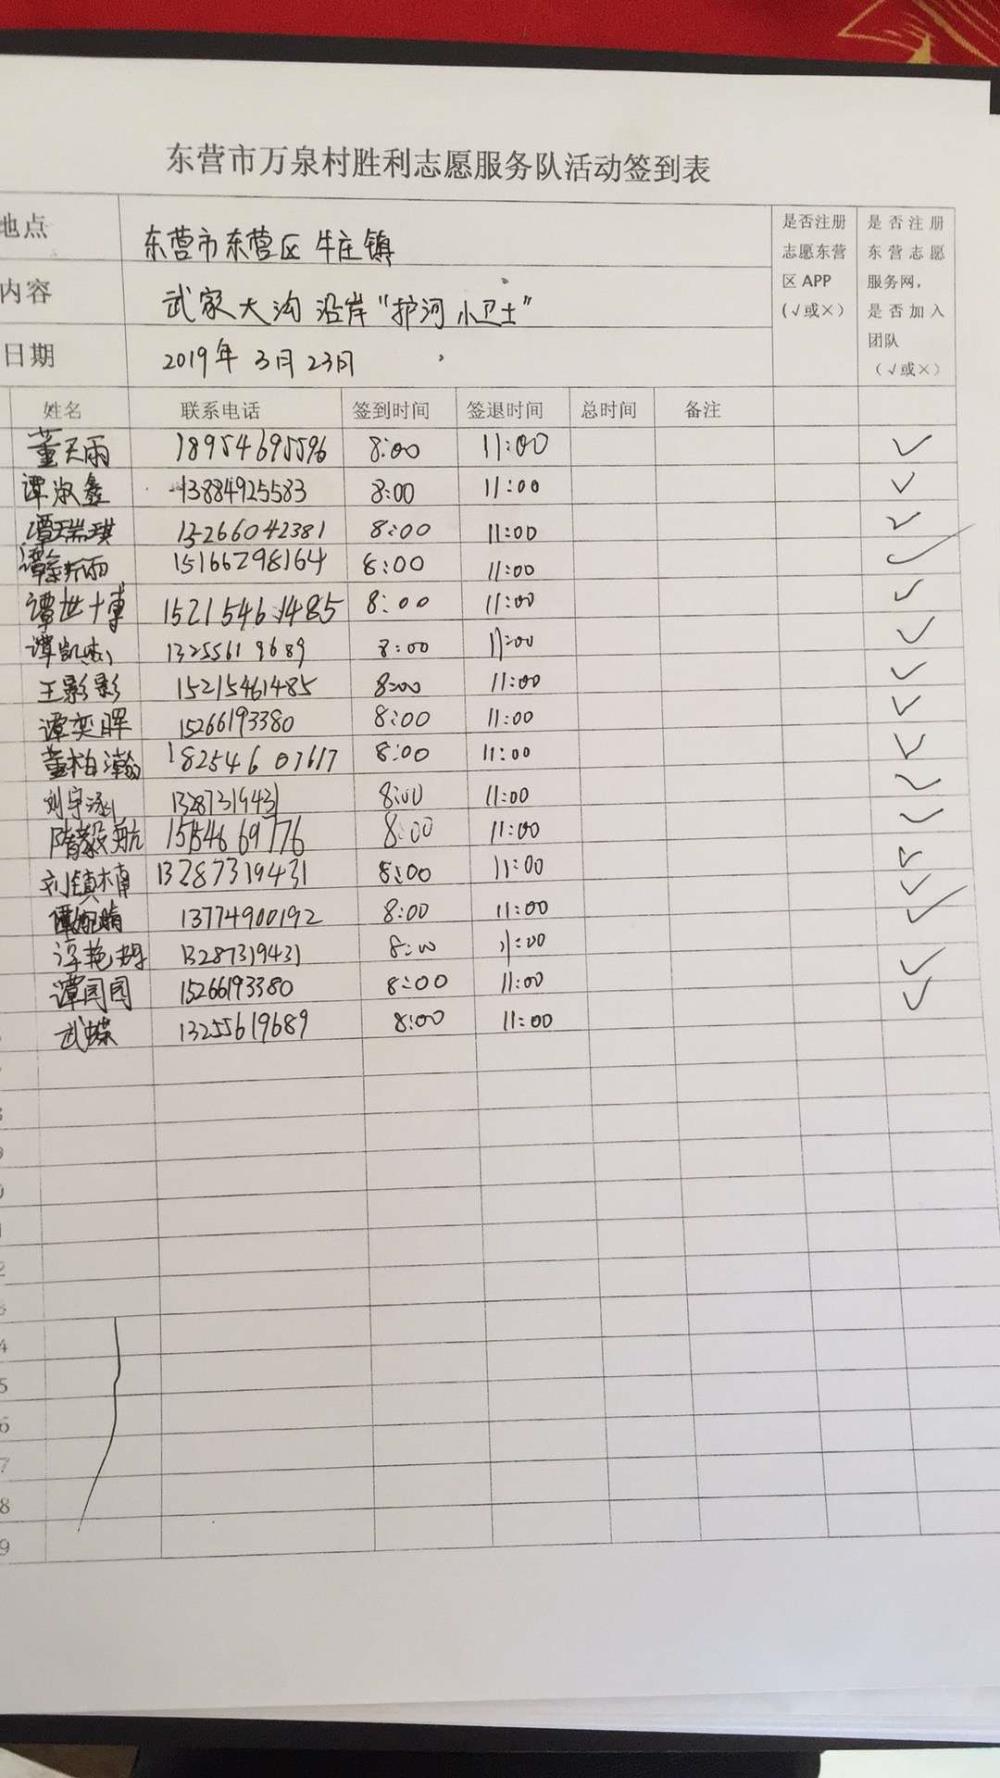 东营市万泉村胜利志愿服务队活动签到表
地点 东营市东营区牛庄镇
内容 武家大沟沿岸“护河小卫士”
日期 2019年3月23日
是否注册志愿东营区APP(√或×)
是否注册东营志愿服务网，是否加入团队(√或×)
姓名 联系电话 签到时间 签退时间 总时间 备注
董天雨 18954695596 8:00 11:00 ✓
谭淑鑫 13884925583 8:00 11:00 ✓
谭瑞琪 15266042381 8:00 11:00 ✓
15166298164 8:00 11:00 ✓
谭世博 15215461485 8:00 11:00 ✓
谭凯 13255619689 8:00 11:00 ✓
王影影 15215461485 8:00 11:00 ✓
谭奕晖 15266193380 8:00 11:00 ✓
董柏瀚 18254607617 8:00 11:00 ✓
刘宇涵 13287319431 8:00 11:00 ✓
隋毅航 8:00 11:00 ✓
刘镇楠 13287319431 8:00 11:00 ✓
13774900192 8:00 11:00 ✓
13287319431 8:00 11:00 ✓
谭园园 15266193380 8:00 11:00 ✓
武蝶 13255619689 8:00 11:00 ✓